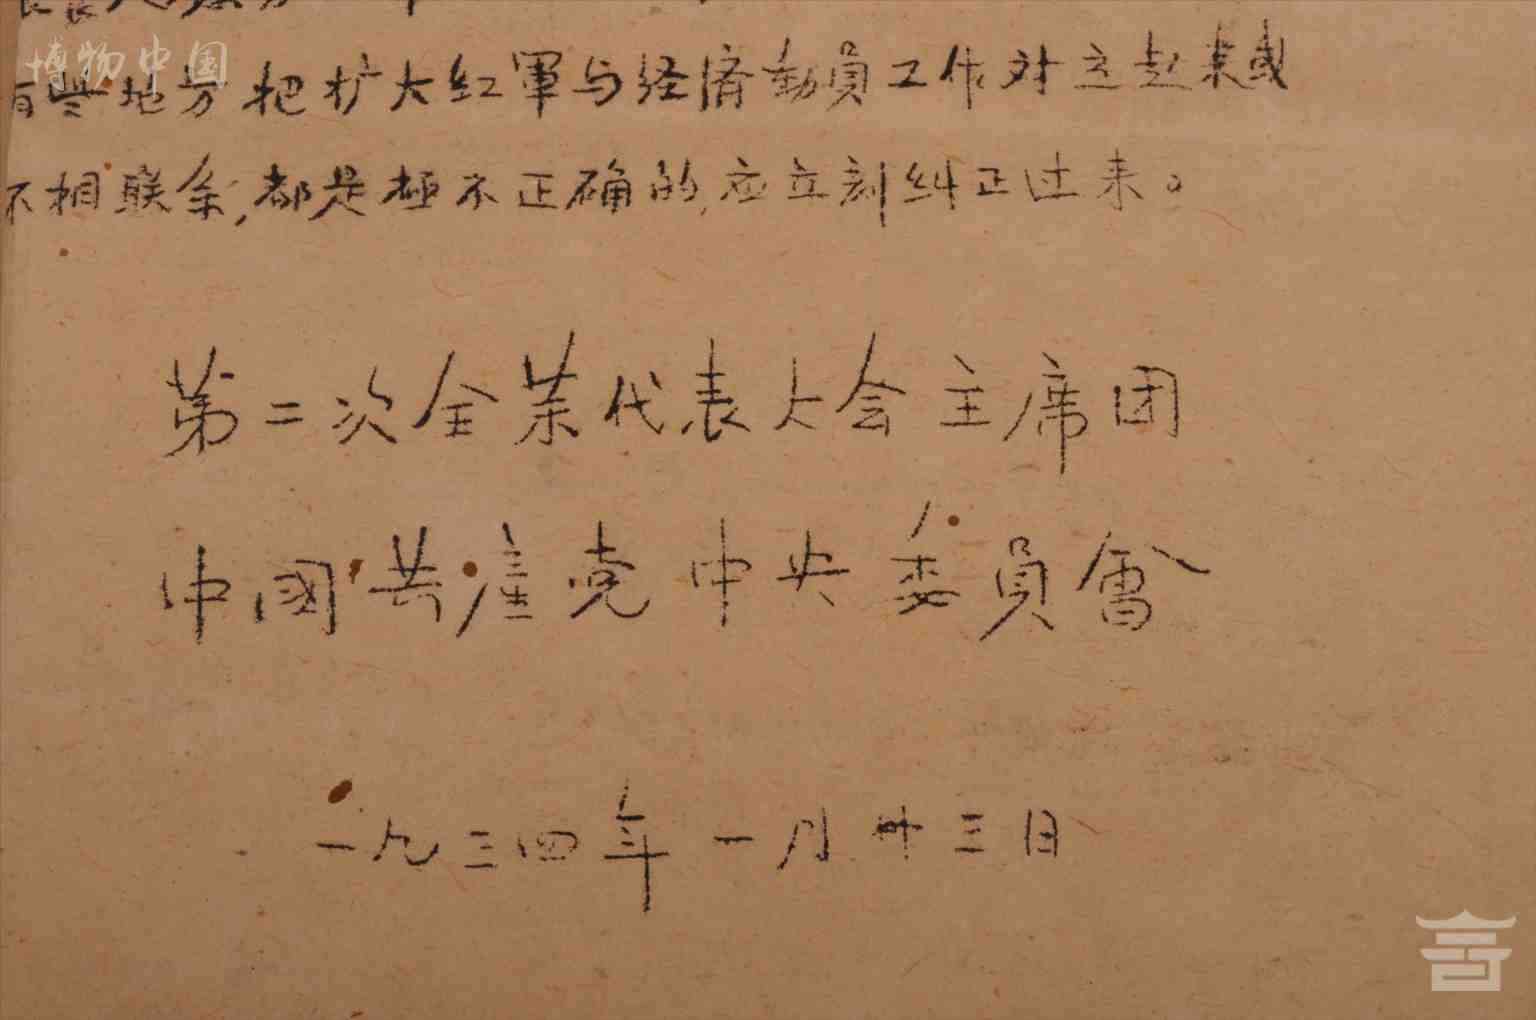 博物中国
有些地方把扩大红軍与经济動員工作对立起来或
不相联系,都是極不正确的,应立刻纠正过来。
第二次全苏代表大会主席团
中國共產党中央委員會
一九三四年一月廿三日